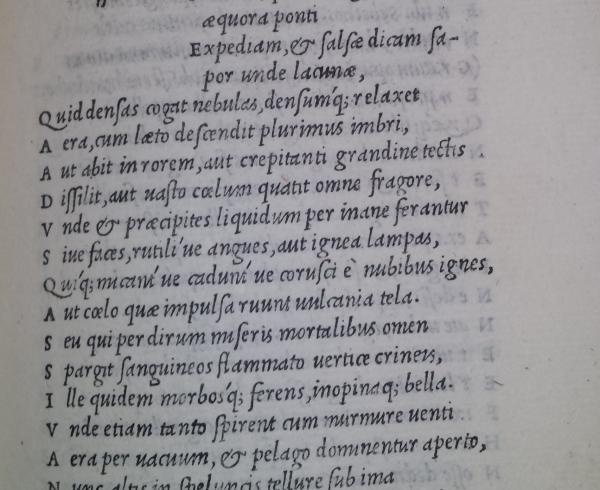 æquora ponti
Expediam, & salsæ dicam sa-
por unde lacunæ,
Quid densas cogat nebulas, densumq́; relaxet
A era, cum læto descendit plurimus imbri,
A ut abit in rorem, aut crepitanti grandine tectis.
D issilit, aut uasto cœlum quatit omne fragore,
V nde & præcipites liquidum per inane ferantur
S iue faces, rutili´ue angues, aut ignea lampas,
Quiq́; micant´ue cadunt´ue corusci è nubibus ignes,
A ut cœlo quæ impulsa ruunt uulcania tela.
S eu qui per dirum miseris mortalibus omen
S pargit sanguineos flammato uertice crineis,
I lle quidem morbosq́; ferens, inopinaq; bella.
V nde etiam tanto spirent cum murmure uenti
A era per uacuum, & pelago dominentur aperto,
N unc altis in speluncis tellure sub ima